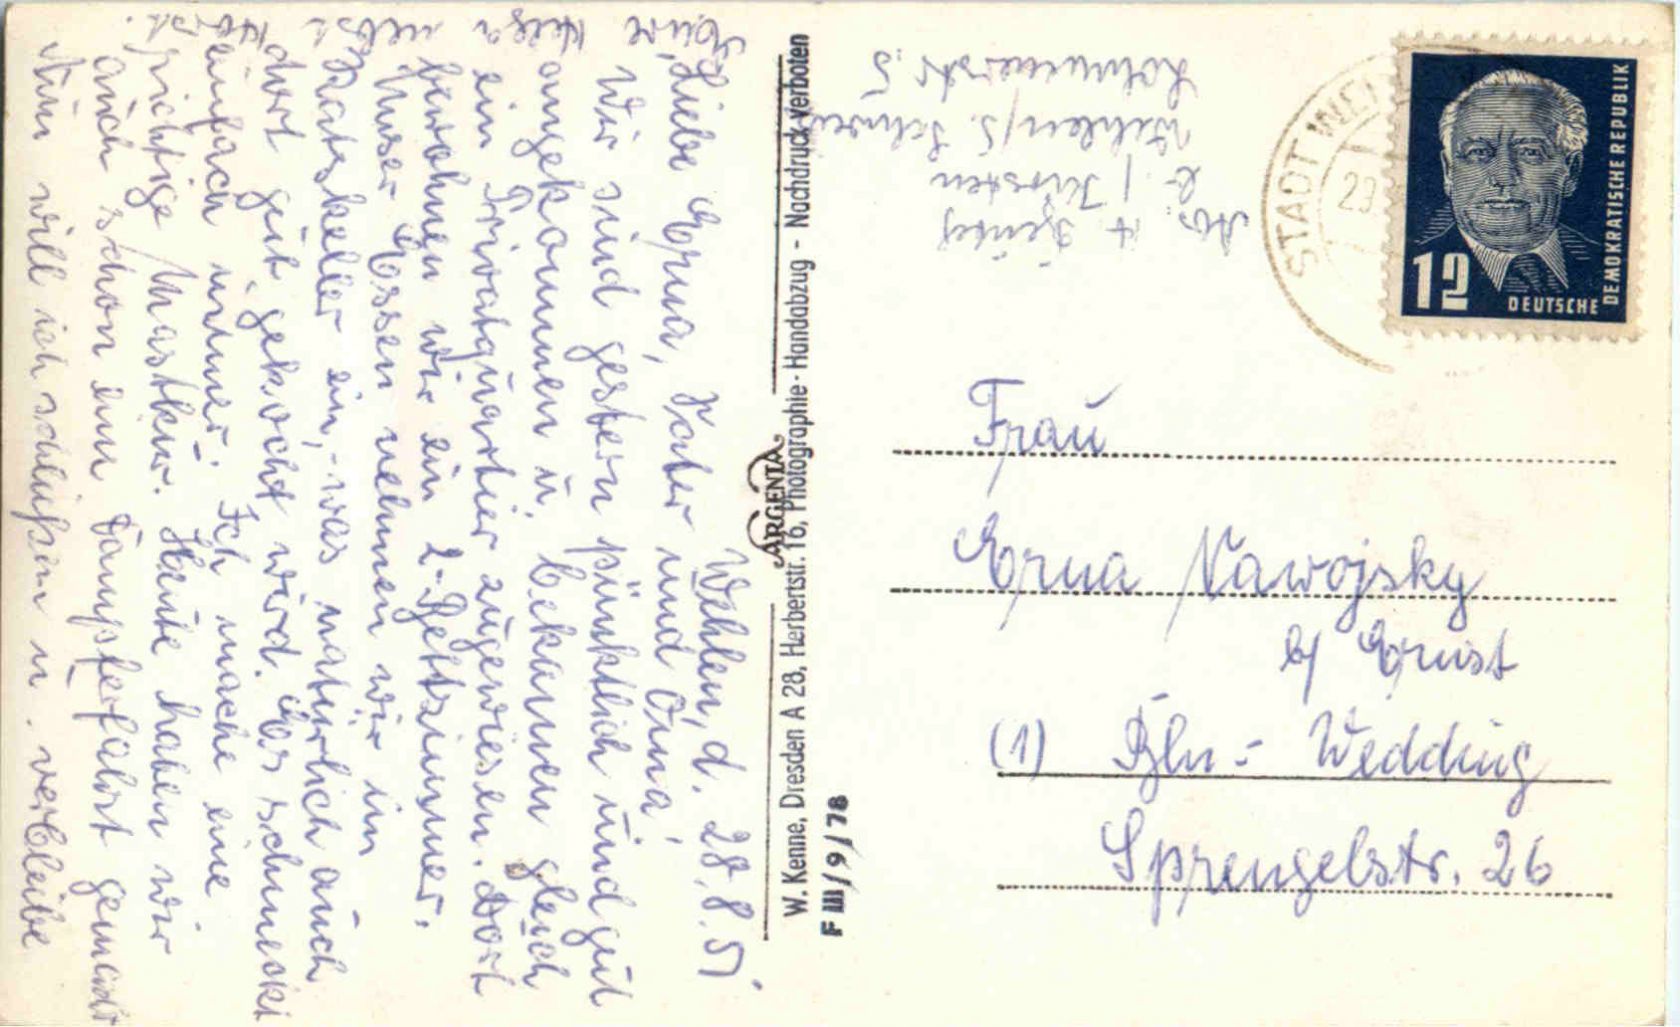 Wehlen, d. 28.8.51
Liebe Erna, Vater und Oma!
Wir sind gestern pünktlich und gut
angekommen u. bekamen gleich
ein Privatquartier zugewiesen. Dort
bewohnen wir ein 2-Bettzimmer.
Unser Essen nehmen wir im
Ratskeller ein, - was natürlich auch
dort gut gekocht wird. Es schmeckt
einfach immer. Ich mache eine
richtige Mastkur. Heute haben wir
auch schon eine Dampferfahrt gemacht
Nun will ich schließen u. verbleibe
Eure Helga nebst
W. Kenne, Dresden A 28, Herbertstr. 16, Photographie - Handabzug - Nachdruck verboten
ARGENTA
F III/9/78
Abs.
Wehlen/S. Schweiz
STADT WEHLEN
29
12
DEUTSCHE
DEMOKRATISCHE REPUBLIK
Frau
Erna Nawojsky
b/ Ernst
(1) Bln.- Wedding
Sprengelstr. 26